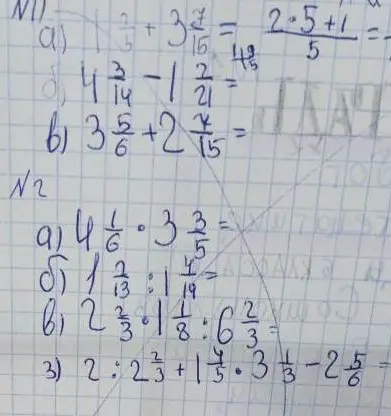 N1
а) 1 2/5 + 3 7/15 = (2·5+1)/5 =
б) 4 3/14 - 1 2/21 =
в) 3 5/6 + 2 7/15 =
N2
а) 4 1/6 · 3 3/5 =
б) 1 2/13 : 1 4/19 =
в) 2 2/3 · 1 1/8 : 6 2/3 =
з) 2 : 2 2/3 + 1 4/5 · 3 1/3 - 2 5/6 =